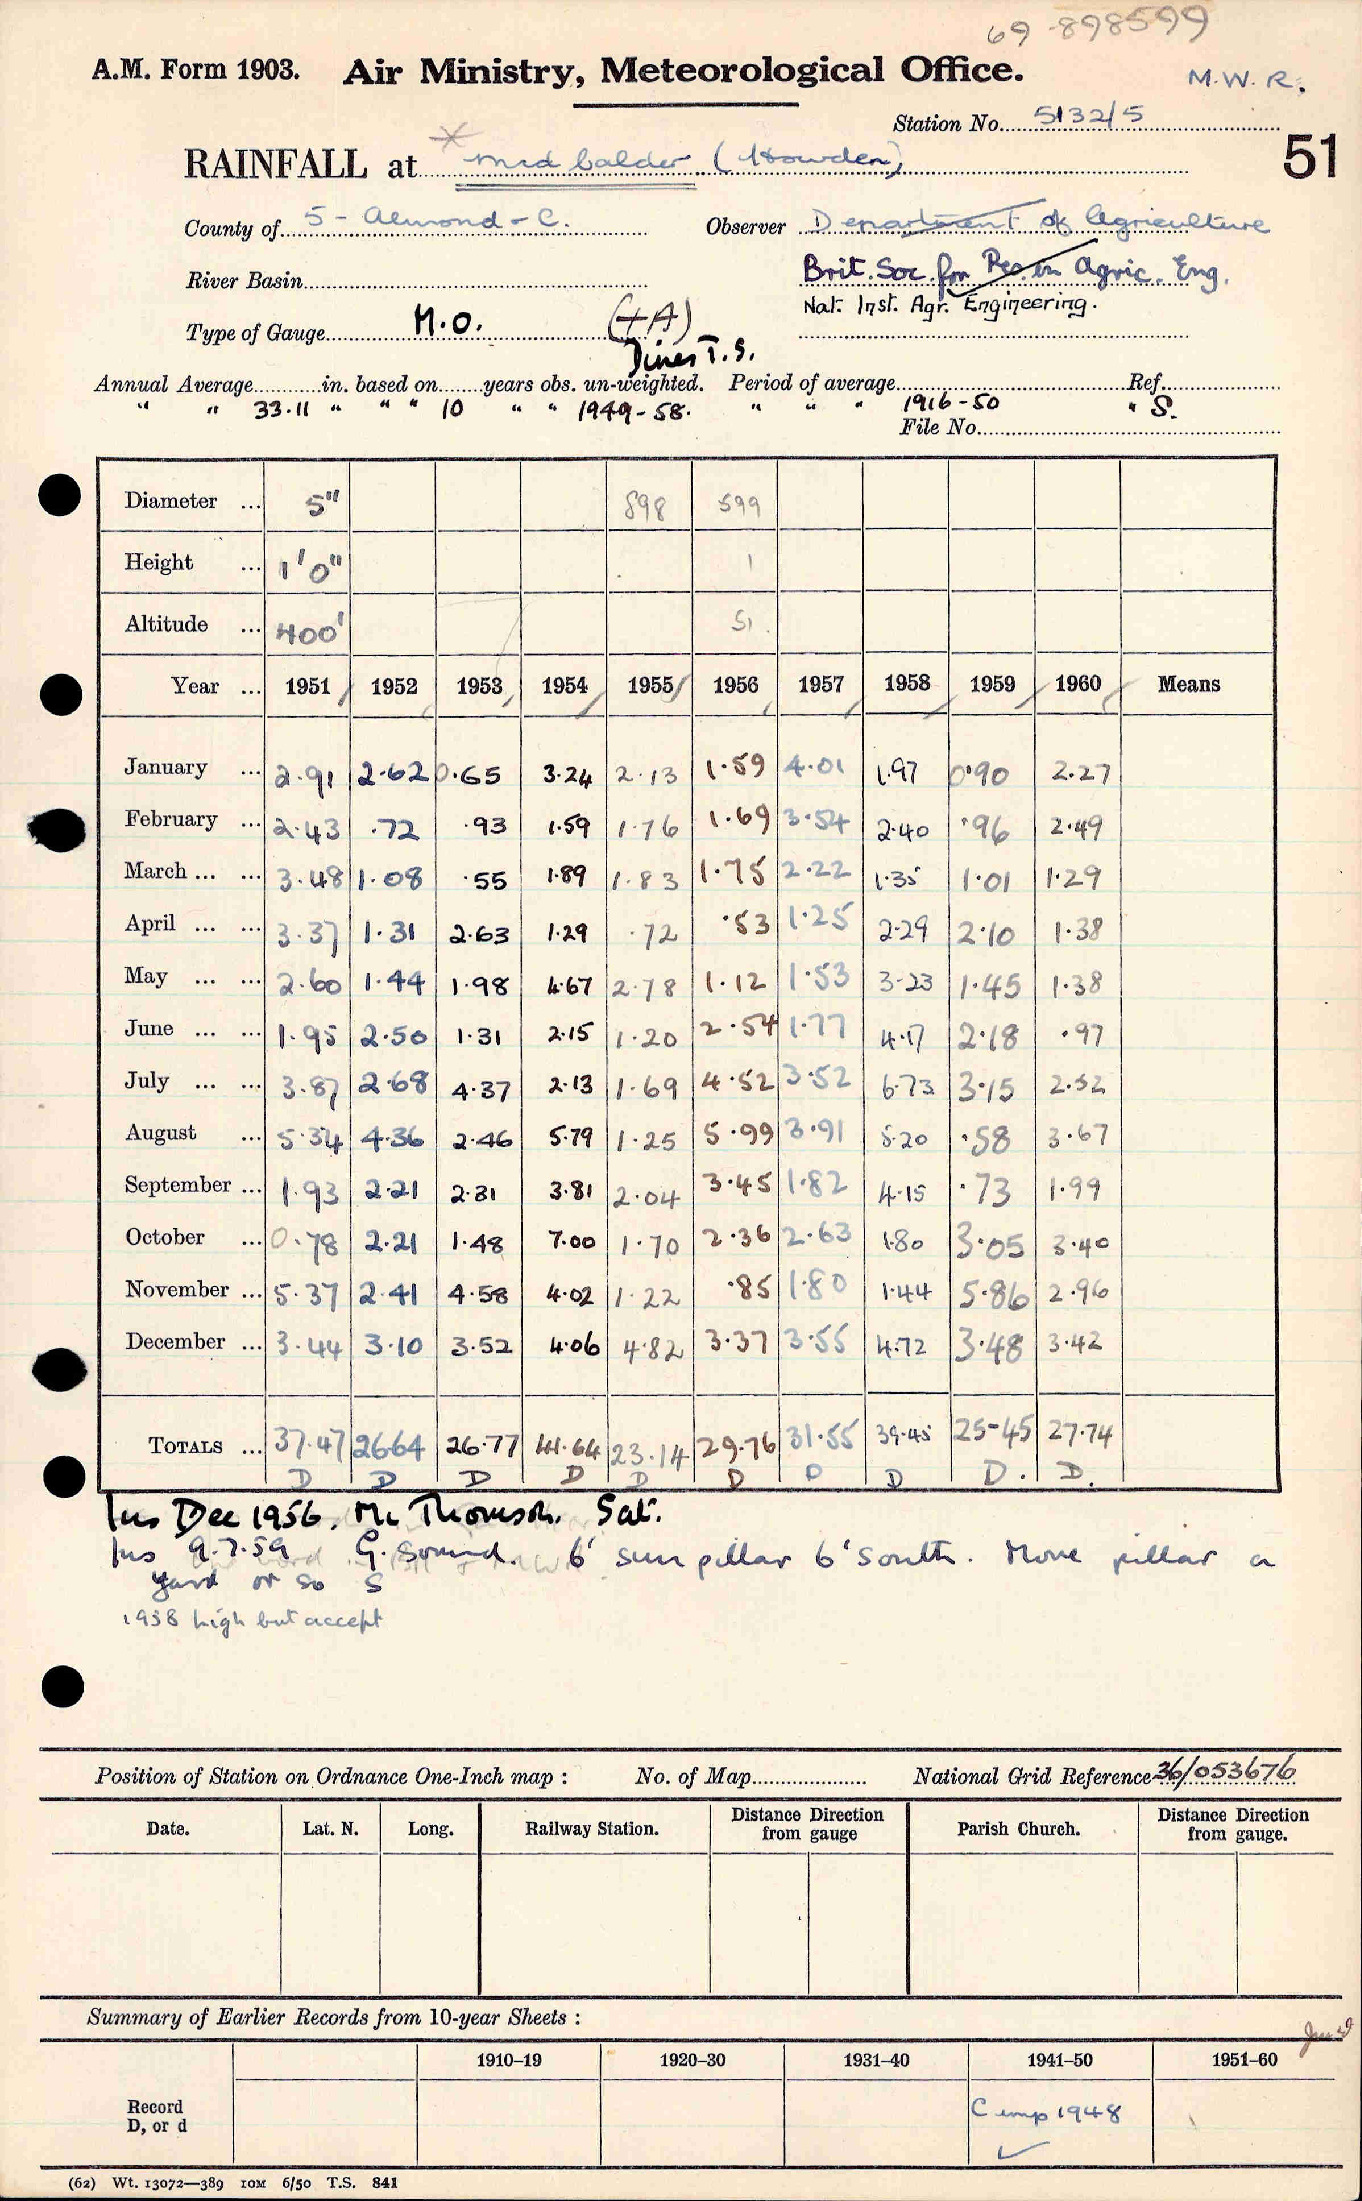 69 -898599
A.M. Form 1903. Air Ministry, Meteorological Office. M.W.R.
Station No. 5132/5
51
RAINFALL at * Mid Calder (Howden)
County of 5 - Almond - C. Observer Department of Agriculture
Brit. Soc. for Res. in Agric. Eng.
River Basin
Nat. Inst. Agr. Engineering.
Type of Gauge M.O. (+A)
Dines T.S.
Annual Average in. based on years obs. un-weighted. Period of average Ref.
" " 33.11 " " " 10 " " 1949-58. " " " 1916-50 " S.
File No.
Diameter ... 5" 898 599
Height ... 1'0" 1
Altitude ... 400' 51
Year ... 1951 1952 1953 1954 1955 1956 1957 1958 1959 1960 Means
January ... 2.91 2.62 0.65 3.24 2.13 1.59 4.01 1.97 0.90 2.27
February ... 2.43 .72 .93 1.59 1.76 1.69 3.54 2.40 .96 2.49
March ... ... 3.48 1.08 .55 1.89 1.83 1.75 2.22 1.35 1.01 1.29
April ... ... 3.37 1.31 2.63 1.29 .72 .53 1.25 2.29 2.10 1.38
May ... ... 2.60 1.44 1.98 4.67 2.78 1.12 1.53 3.23 1.45 1.38
June ... ... 1.95 2.50 1.31 2.15 1.20 2.54 1.77 4.17 2.18 .97
July ... ... 3.87 2.68 4.37 2.13 1.69 4.52 3.52 6.73 3.15 2.52
August ... 5.34 4.36 2.46 5.79 1.25 5.99 3.91 5.20 .58 3.67
September ... 1.93 2.21 2.31 3.81 2.04 3.45 1.82 4.15 .73 1.99
October ... 0.78 2.21 1.48 7.00 1.70 2.36 2.63 1.80 3.05 3.40
November ... 5.37 2.41 4.58 4.02 1.22 .85 1.80 1.44 5.86 2.96
December ... 3.44 3.10 3.52 4.06 4.82 3.37 3.55 4.72 3.48 3.42
TOTALS ... 37.47 26.64 26.77 41.64 23.14 29.76 31.55 39.45 25-45 27.74
D D D D D D D D D. D.
Ins Dec 1956. Mr Thomson. Sat.
Ins 9.7.59 G. Sound. 6' sun pillar 6' South. Move pillar a
yard or so S
1958 high but accept
Position of Station on Ordnance One-Inch map : No. of Map National Grid Reference 36/053676
Date. Lat. N. Long. Railway Station. Distance Direction from gauge Parish Church. Distance Direction from gauge.
Summary of Earlier Records from 10-year Sheets :
1910–19 1920–30 1931–40 1941–50 1951–60
Record
D, or d
Comp 1948
(62) Wt. 13072—389 10M 6/50 T.S. 841